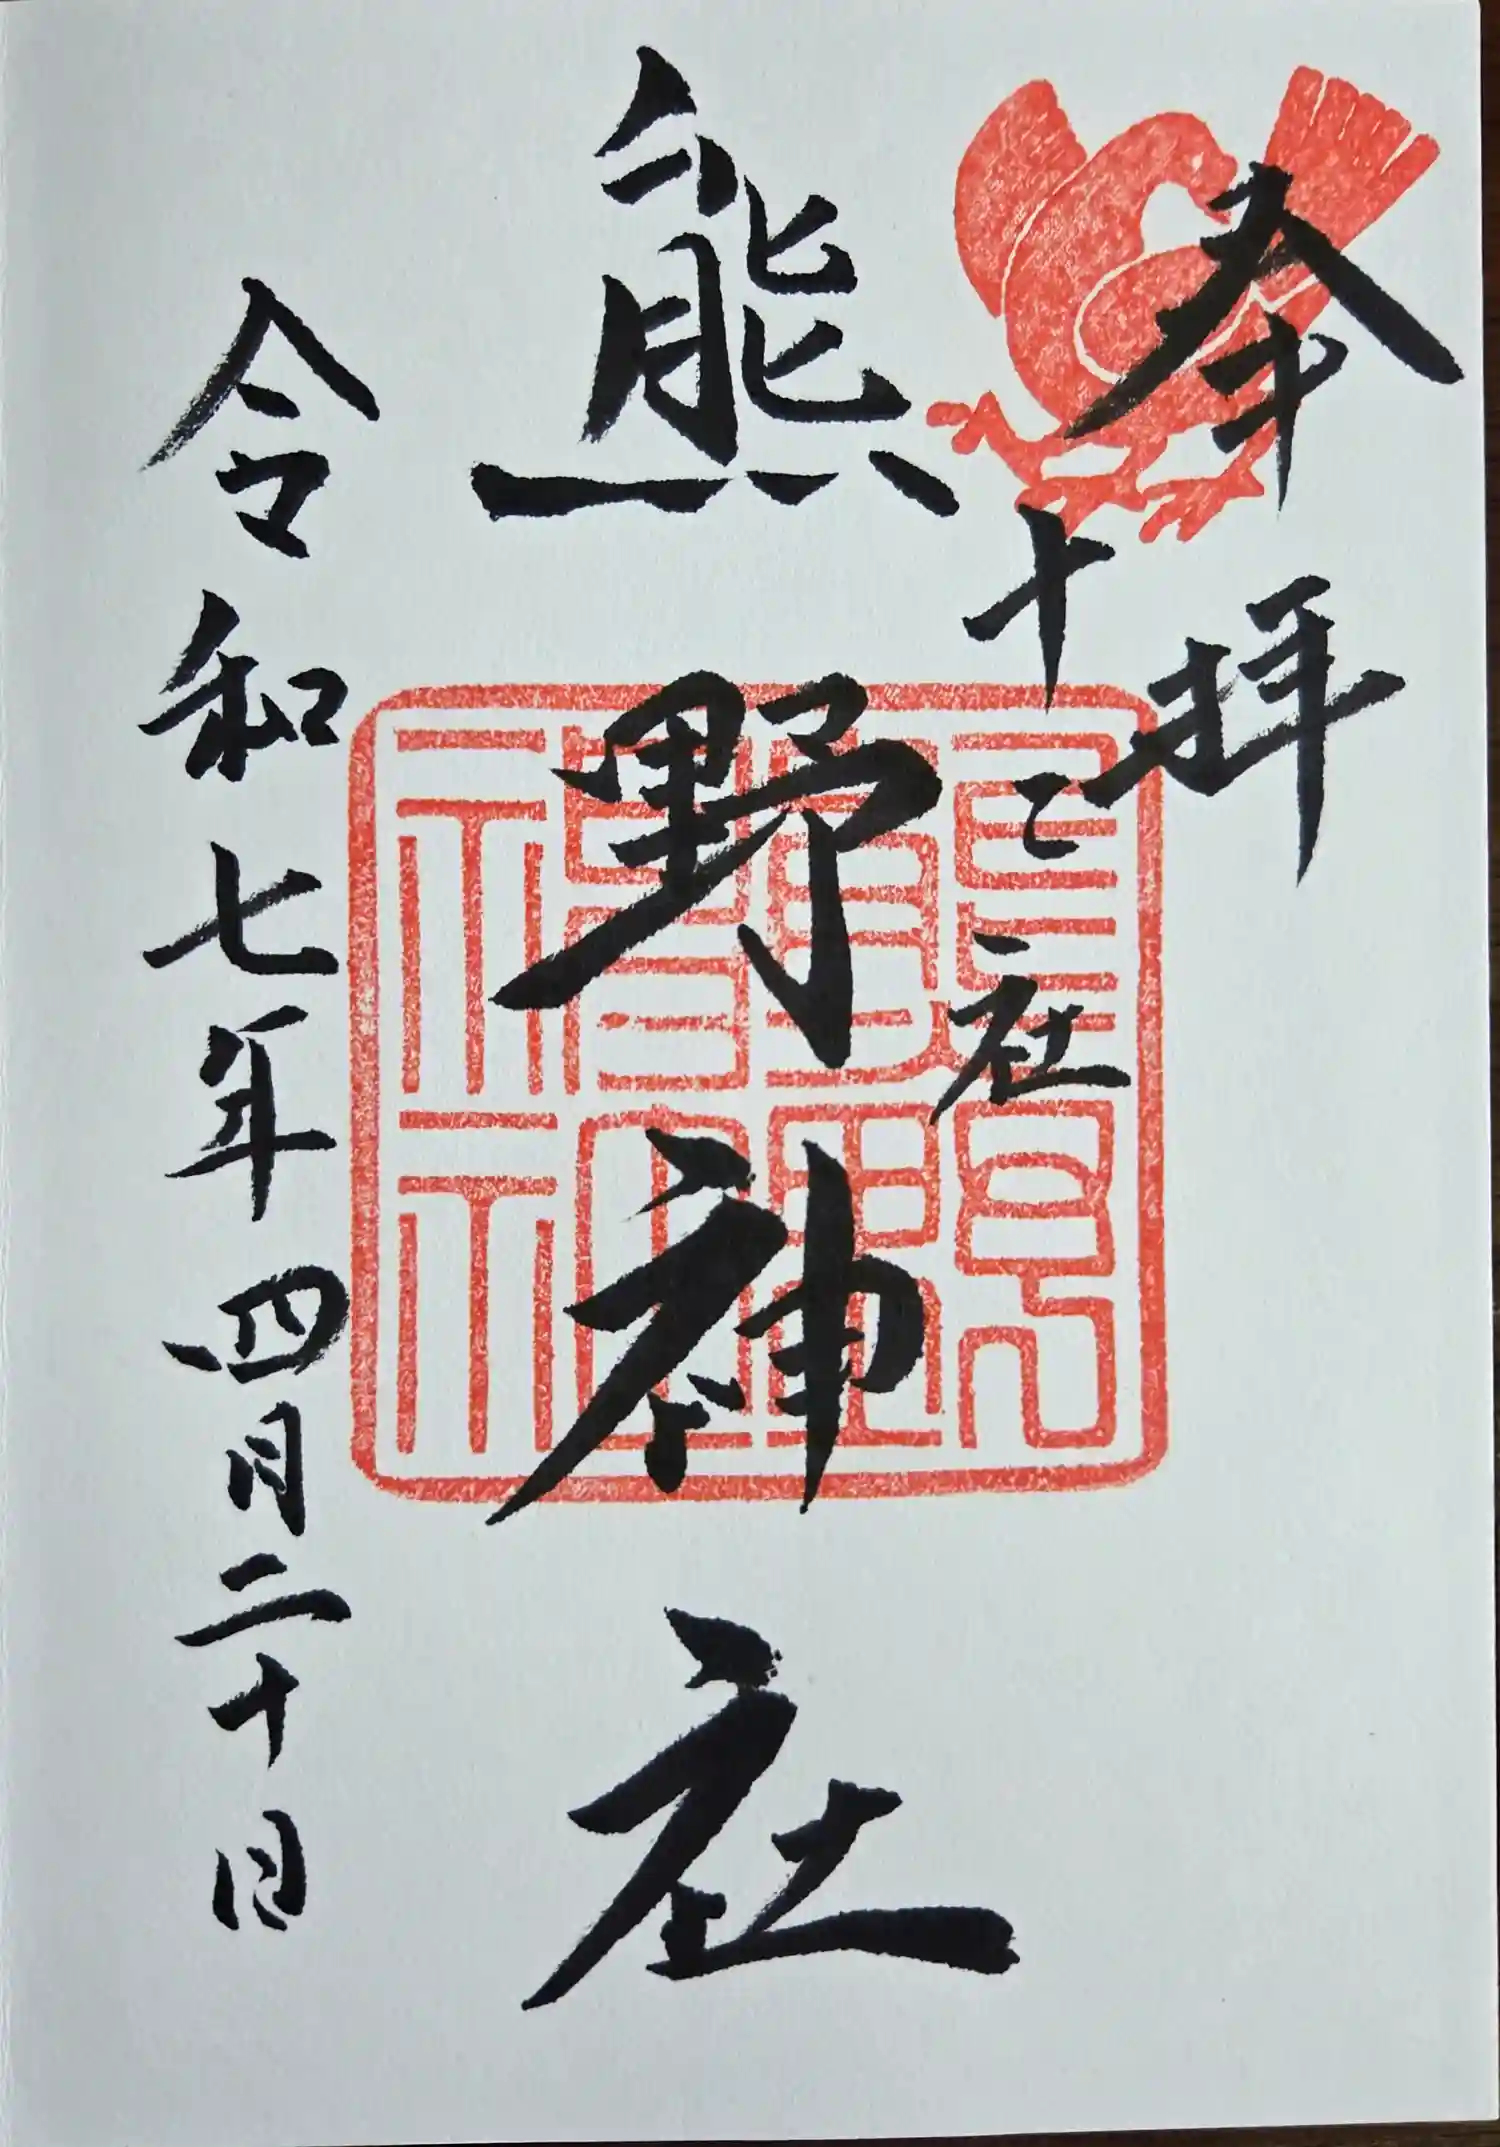 奉拝
十二社
熊野神社
令和七年四月二十日